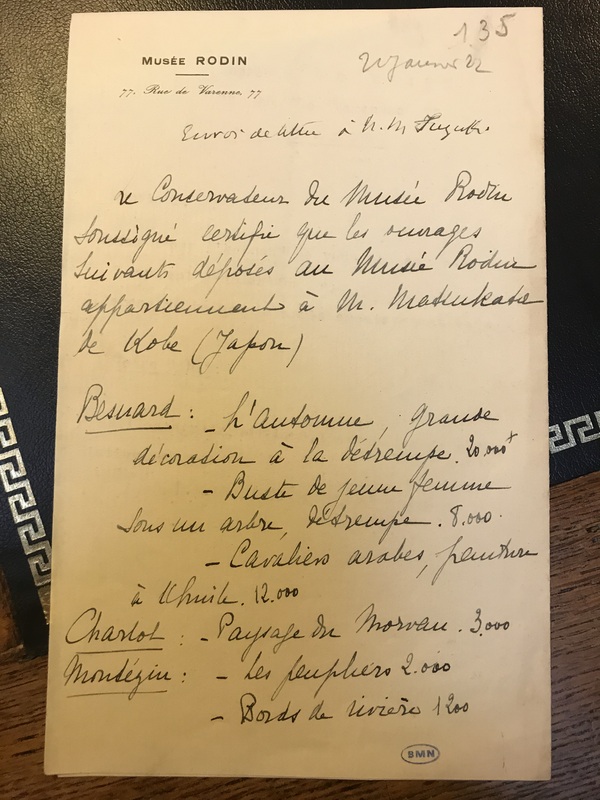 135
MUSÉE RODIN
21 janvier 22
77, Rue de Varenne, 77
Envoi de lettre à M. M. Suzuki.
Le Conservateur du Musée Rodin
soussigné certifie que les ouvrages
suivants déposés au Musée Rodin
appartiennent à M. Matsukata
de Kobe (Japon)
Besnard : - L'automne, grande
décoration à la détrempe. 20.000
- Buste de jeune femme
sous un arbre, détrempe. 8.000.
- Cavaliers arabes, peinture
à l'huile. 12.000
Charlot : - Paysage du Morvan. 3.000
Montézin : - Les peupliers 2.000
- Bords de rivière 1200
BMN